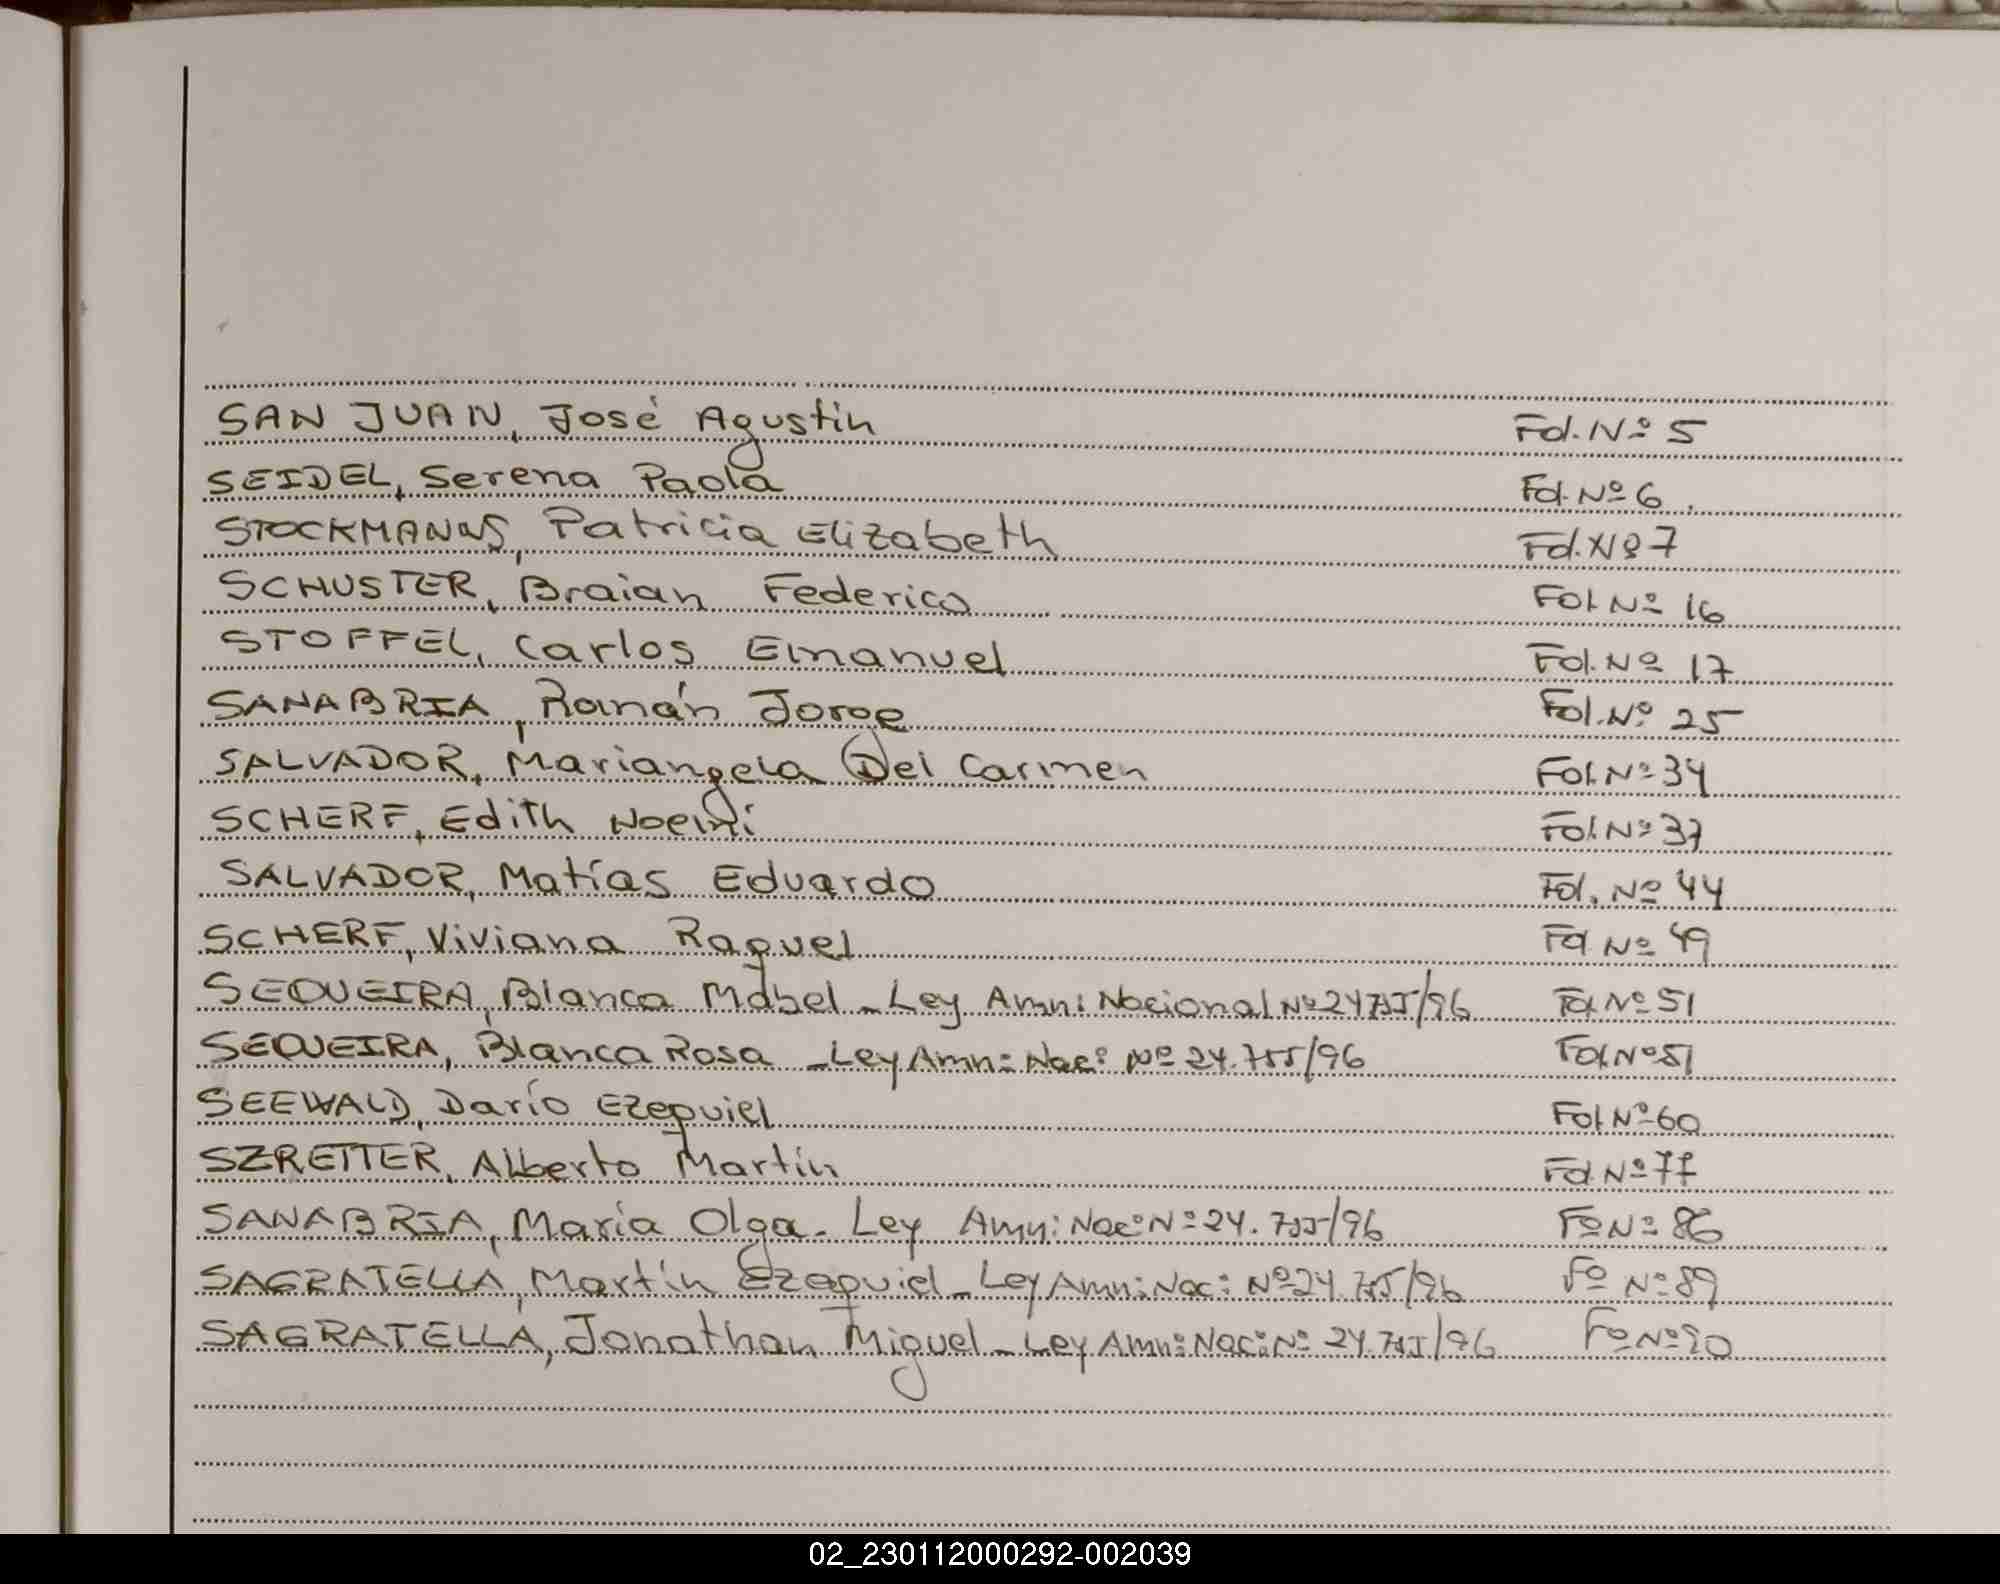 SAN JUAN, José Agustín Fol. Nº 5
SEIDEL, Serena Paola Fol. Nº 6
STOCKMANNS, Patricia Elizabeth Fol. Nº 7
SCHUSTER, Braian Federico Fol. Nº 16
STOFFEL, Carlos Emanuel Fol. Nº 17
SANABRIA, Román Jorge Fol. Nº 25
SALVADOR, Mariangela Del Carmen Fol. Nº 34
SCHERF, Edith Noemi Fol. Nº 37
SALVADOR, Matías Eduardo Fol. Nº 44
SCHERF, Viviana Raquel Fol. Nº 49
SEQUEIRA, Blanca Mabel - Ley Amn: Nacional Nº 24755/96 Fol. Nº 51
SEQUEIRA, Blanca Rosa - Ley Amn: Nac: Nº 24.755/96 Fol. Nº 51
SEEWALD, Darío Ezequiel Fol. Nº 60
SZRETTER, Alberto Martín Fol. Nº 77
SANABRIA, María Olga. Ley Amn: Nac: Nº 24.755/96 Fº Nº 86
SAGRATELLA, Martín Ezequiel - Ley Amn: Nac: Nº 24.755/96 Fº Nº 89
SAGRATELLA, Jonathan Miguel - Ley Amn: Nac: Nº 24.755/96 Fº Nº 90
02_230112000292-002039